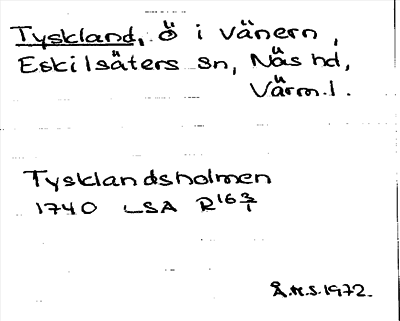 Tyskland, ö i Vänern,
Eskilsäters sn, Näs hd,
Värml.
Tysklandsholmen
1740 LSA R16 3/1
Å.H.S.1972.